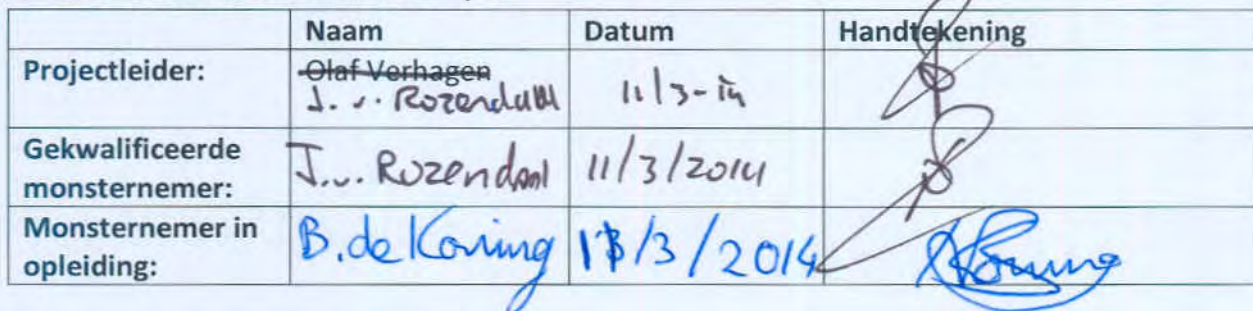 Naam Datum Handtekening
Projectleider: Olaf Verhagen
J. v. Rozendaal 11/3-14
Gekwalificeerde
monsternemer: J.v. Rozendaal 11/3/2014
Monsternemer in
opleiding: B. de Koning /3/2014